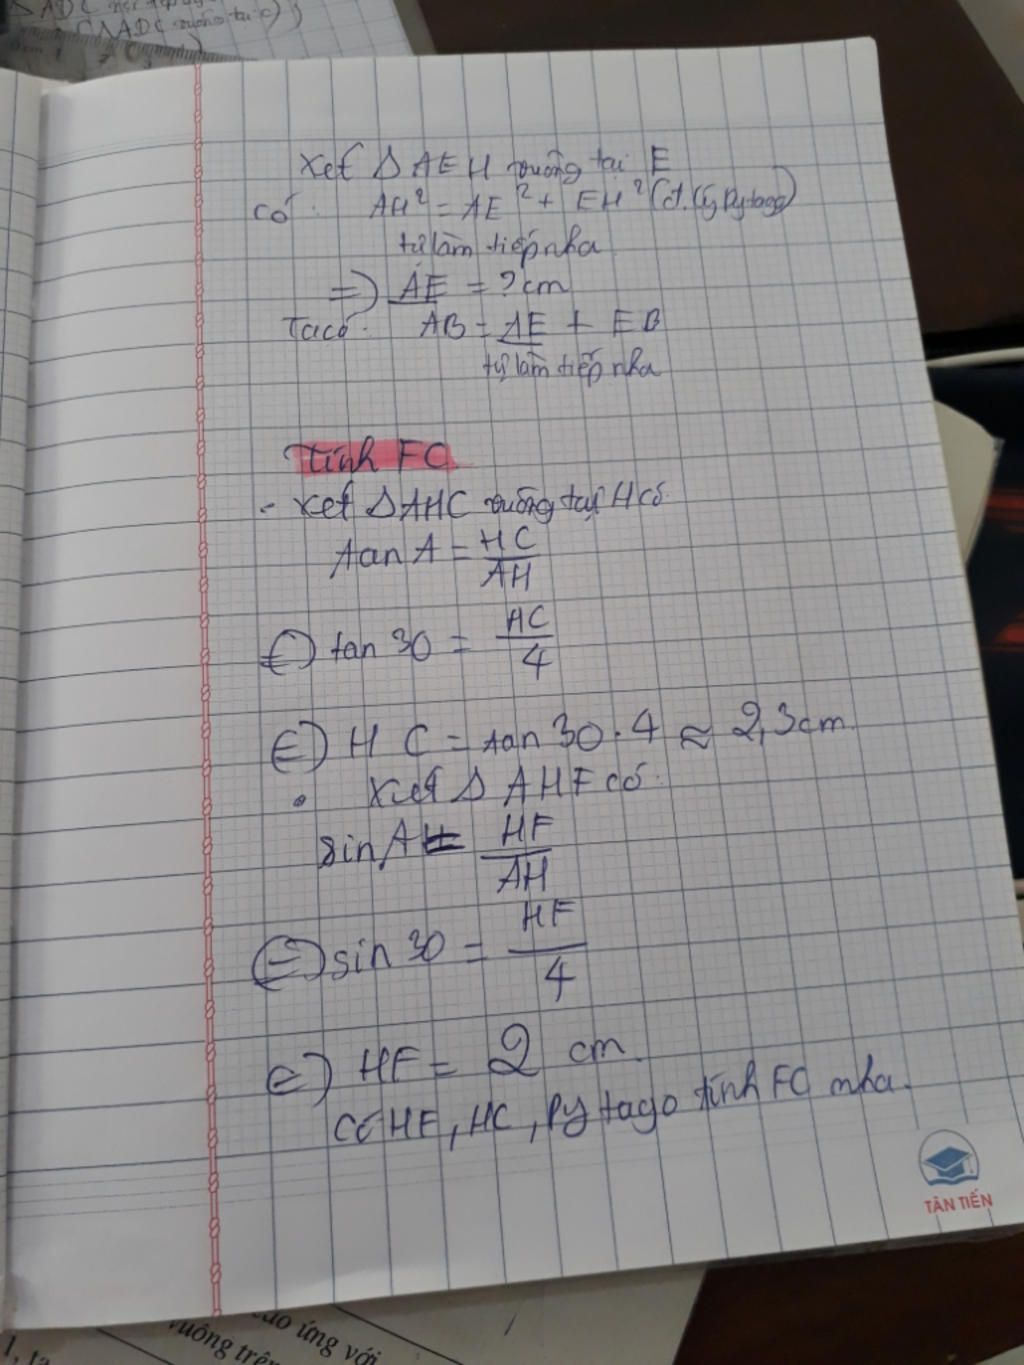 (△ADC vuông tại C)
Xét △AEH vuông tại E
có: AH² = AE² + EH² (đ.lý Pytago)
tự làm tiếp nha
=) AE = ? cm
Ta có: AB = AE + EB
tự làm tiếp nha
Tính FC
- Xét △AHC vuông tại H có
tan A = HC / AH
(=) tan 30 = HC / 4
(=) HC = tan 30 . 4 ≈ 2,3 cm
• Xét △AHF có:
sin A = HF / AH
(=) sin 30 = HF / 4
(=) HF = 2 cm.
có HF, HC, Pytago tính FC nha.
TÂN TIẾN
ứng với
vuông trên